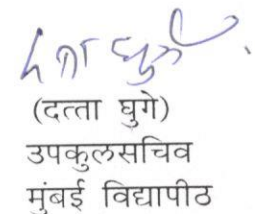 (दत्ता घुगे)
उपकुलसचिव
मुंबई विद्यापीठ